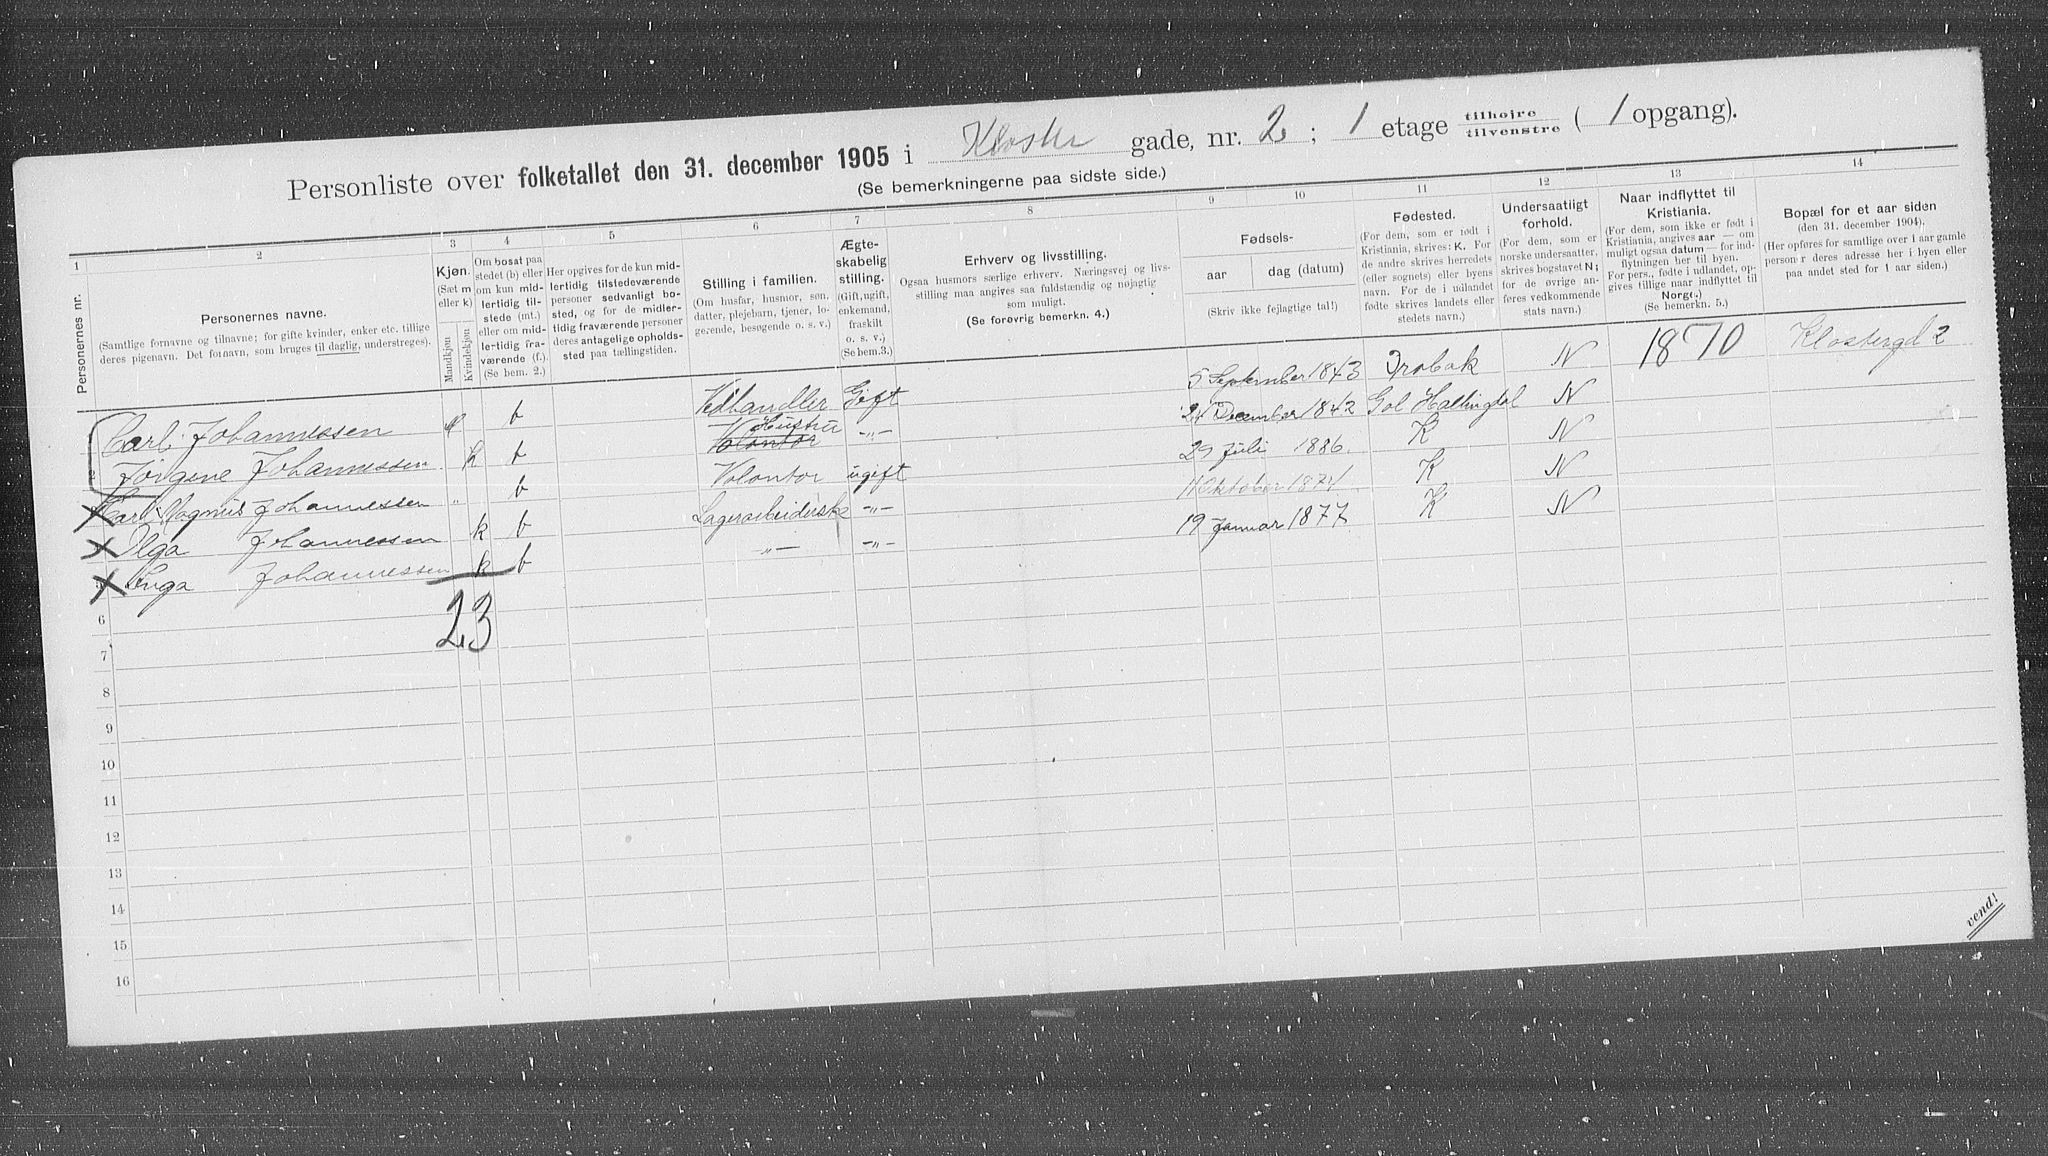 Personliste over folketallet den 31. december 1905 i Kloster gade, nr. 2; 1 etage tilhøjre tilvenstre ( 1 opgang).
(Se bemerkningerne paa sidste side.)
1 2 3 4 5 6 7 8 9 10 11 12 13 14
Personernes nr.
Personernes navne.
(Samtlige fornavne og tilnavne; for gifte kvinder, enker etc. tillige
deres pigenavn. Det fornavn, som bruges til daglig, understreges).
Kjøn.
(Sæt m
eller k)
Mandkjøn
Kvindekjøn
Om bosat paa
stedet (b) eller
om kun mid-
lertidig til-
stede (mt.)
eller om mid-
lertidig fra-
værende (f.)
(Se bem. 2.)
Her opgives for de kun mid-
lertidig tilstedeværende
personer sedvanlig bo-
sted, og for de midler-
tidig fraværende personer
deres antagelige opholds-
sted paa tællingstiden.
Stilling i familien.
(Om husfar, husmor, søn,
datter, plejebarn, tjener, lo-
gerende, besøgende o. s. v.)
Ægte-
skabelig
stilling.
(Gift, ugift,
enkemand,
fraskilt
o. s. v.)
(Se bem. 3.)
Erhverv og livsstilling.
Ogsaa husmors særlige erhverv. Næringsvej og livs-
stilling maa angives saa fuldstændig og nøjagtig
som muligt.
(Se forøvrig bemerkn. 4.)
Fødsels-
aar dag (datum)
(Skriv ikke fejlagtige tal!)
Fødested.
(For dem, som er født i
Kristiania, skrives: K. For
de andre skrives herredets
(eller sognets) eller byens
navn. For de i udlandet
fødte skrives landets eller
stedets navn.)
Undersaatligt
forhold.
(For dem, som er
norske undersaatter,
skrives bogstavet N;
for de øvrige an-
føres vedkommende
stats navn.)
Naar indflyttet til
Kristiania.
(For dem, som ikke er født i
Kristiania, angives aar — om
muligt ogsaa datum — for ind-
flytningen her til byen.
For pers., fødte i udlandet, op-
gives tillige naar indflyttet til
Norge.)
(Se bemerkn. 5.)
Bopæl for et aar siden
(den 31. december 1904).
(Her opføres for samtlige over 1 aar gamle
personer deres adresse her i byen eller
paa andet sted for 1 aar siden.)
Carl Johannessen b Vedhandler Gift 5 September 1843 Drøbak N 1870 Klostergd 2
Jørgene Johannessen k b Volontør Hustru -„- 21 December 1842 Gol Hallingdal N
Carl Magnus Johannessen „ b Volontør ugift 29 Juli 1886. K N
Olga Johannessen k b Lagerarbeiderske -„- 11 Oktober 1874 K N
Inga Johannessen k b -„- -„- 19 Januar 1877 K N
23
6
7
8
9
10
11
12
13
14
15
16
vend!